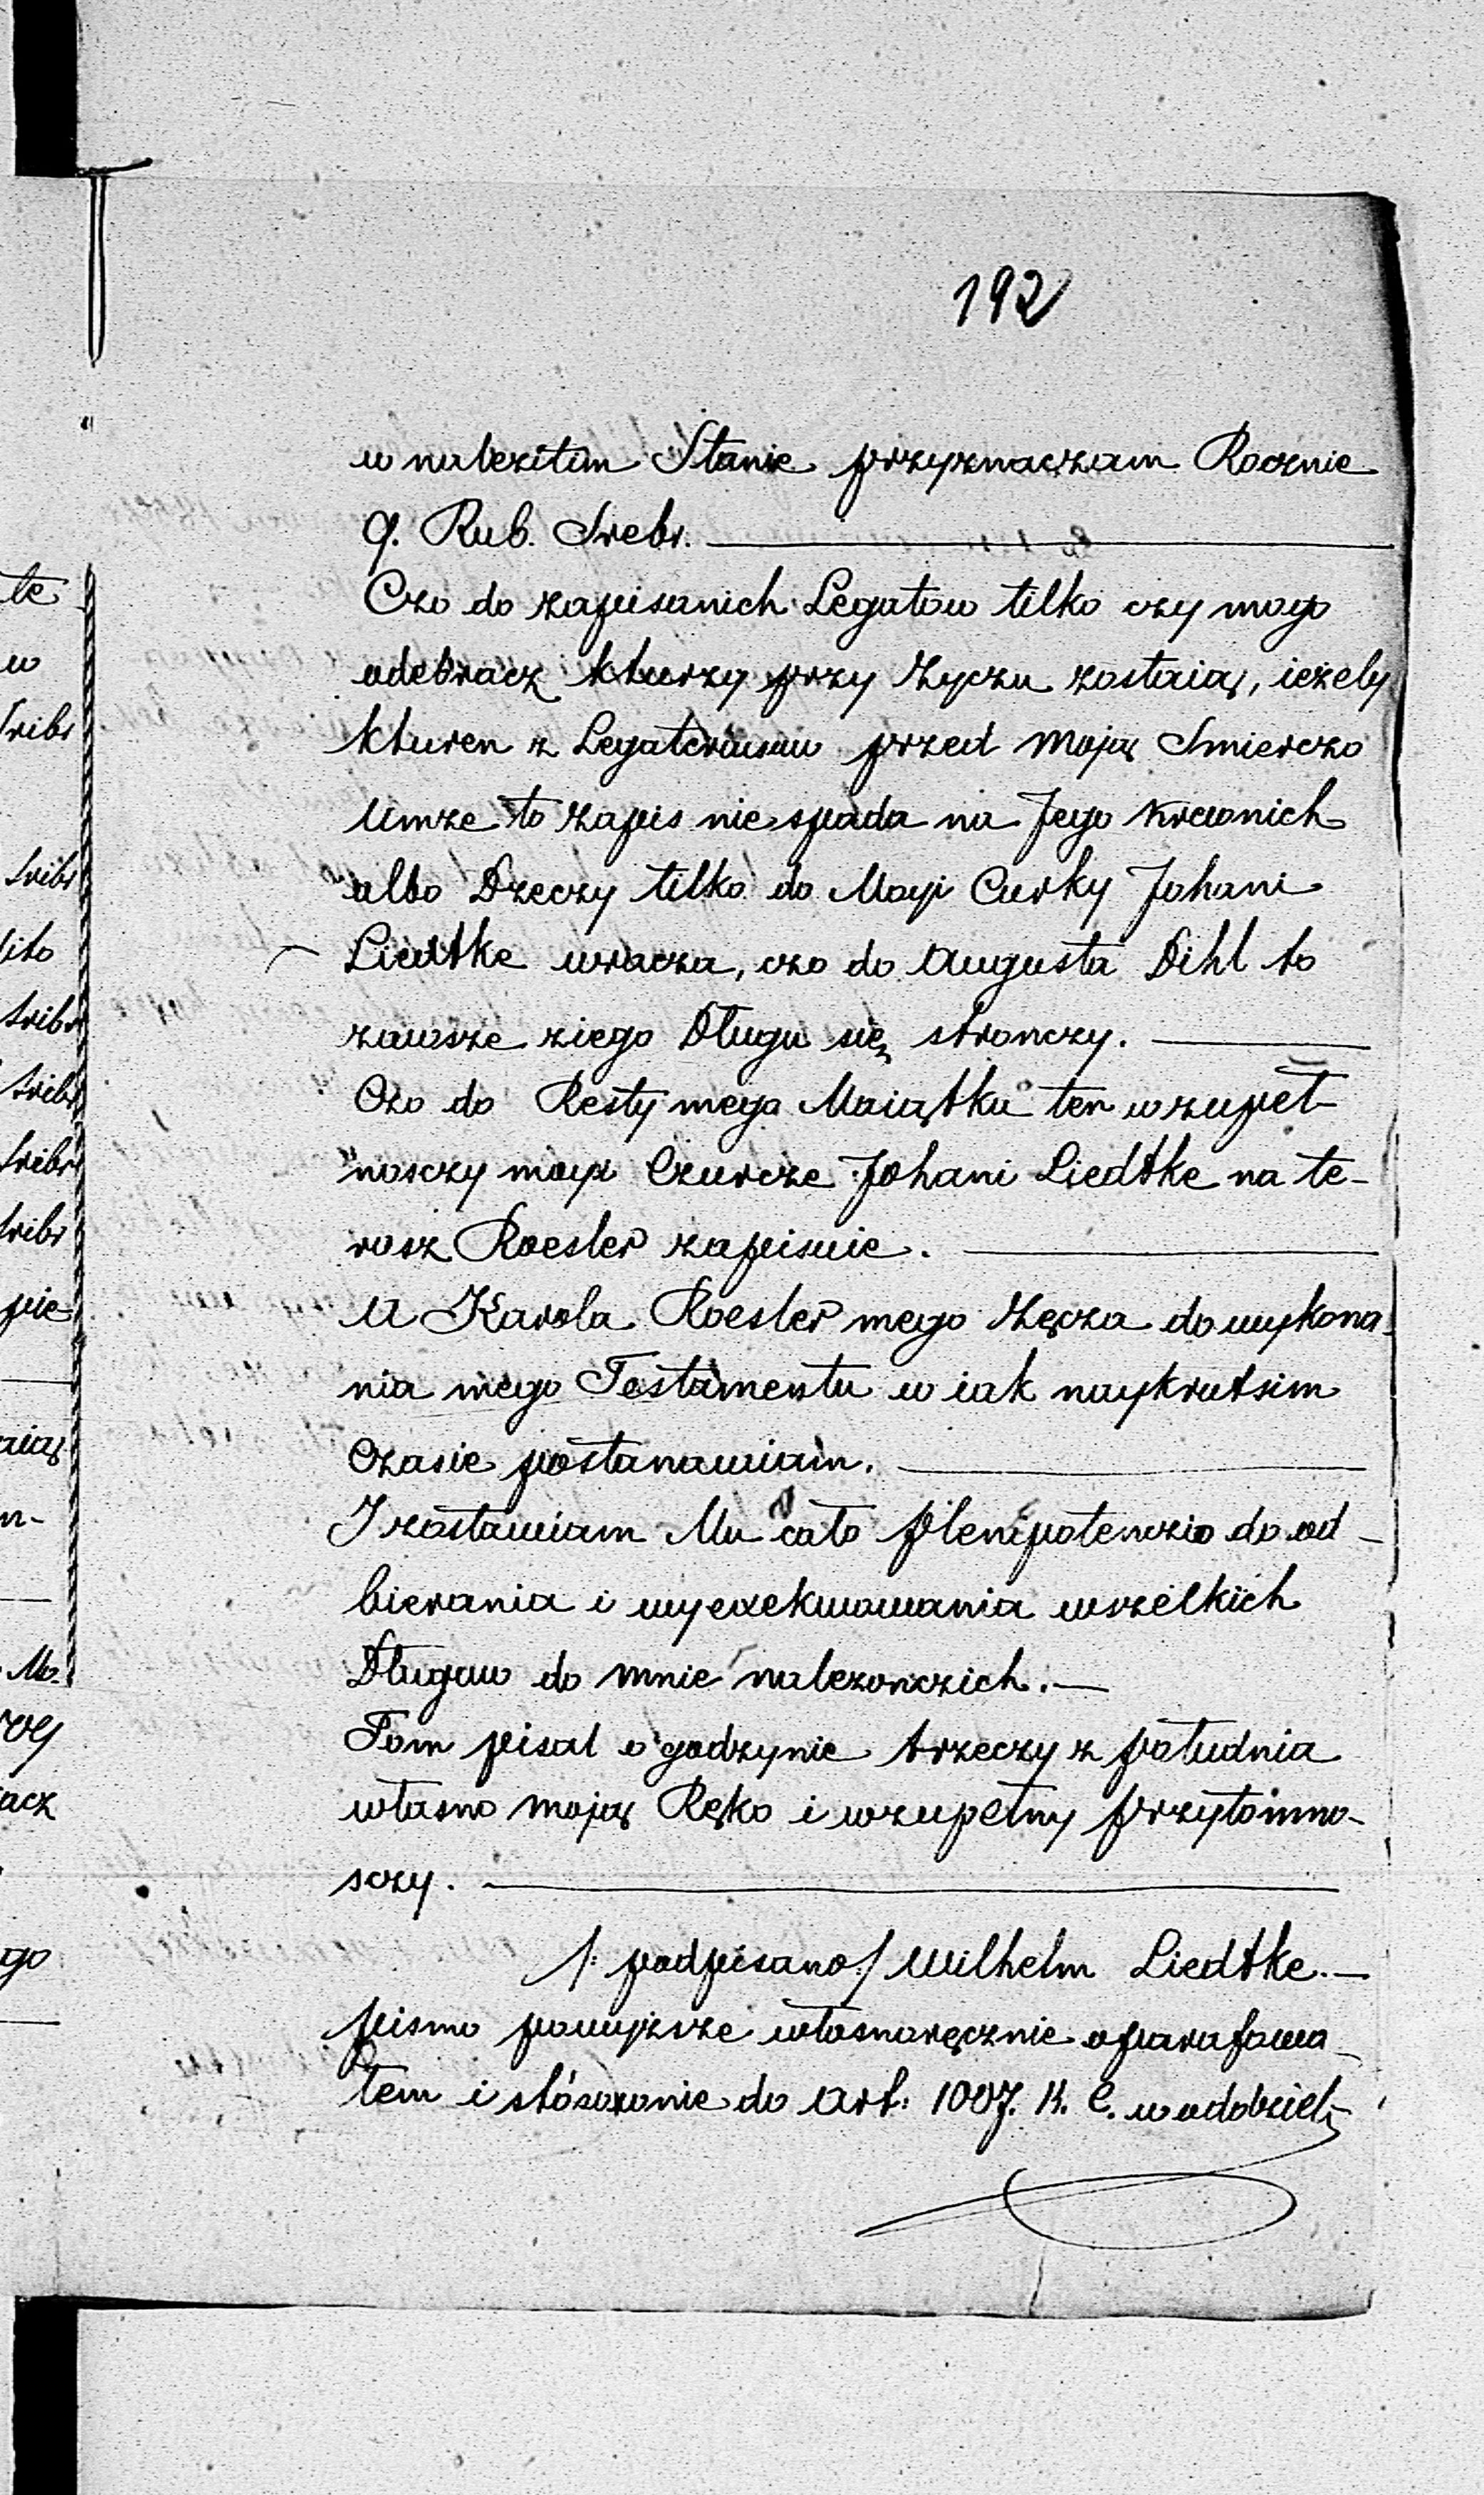 192
w nalezitim Stanie przyznaczam Rocznie
9. Rub. Srebr.
Czo do zapisanich Legatow tilko czy mogo
odebracz kturzy przy Zyczu zostaią, ieżely
kturen z Legateriusuw przed Moją Smierczo
Umrze to zapis nie spada na Jego krewnich
albo Dzeczy tilko do Moyi Curky Johani
Liedtke wracza, czo do Augusta Dihl to
zawsze ziego Długu się stronczy.
Czo do Resty mego Maiątku ten wzupeł-
nosczy moyi Czurcze Johani Liedtke na te-
rasz Roesler zapisuie.
A Karola Roesler mego Zęcza do wykona-
nia mego Testamentu w iak naykrutsim
Czasie postanawiam.
I zostawiam Mu cało plenipotenczio do od-
bierania i wyexekwowania wszelkich
Długuw do mnie nalezonczich.
Tom pisal o godzynie trzeczy z południa
własno moją Ręko i wzupełny przytomno-
sczy.
/: podpisano :/ Wilhelm Liedtke.
pismo powyższe własnoręcznie oparafowa-
łem i stósownie do Art: 1007. K. C. w oddziel-
te
w
Sribr
Sribr
Sribr
Sribr
Sribr
Sribr
pie
aią
n-
Mo-
acz
go